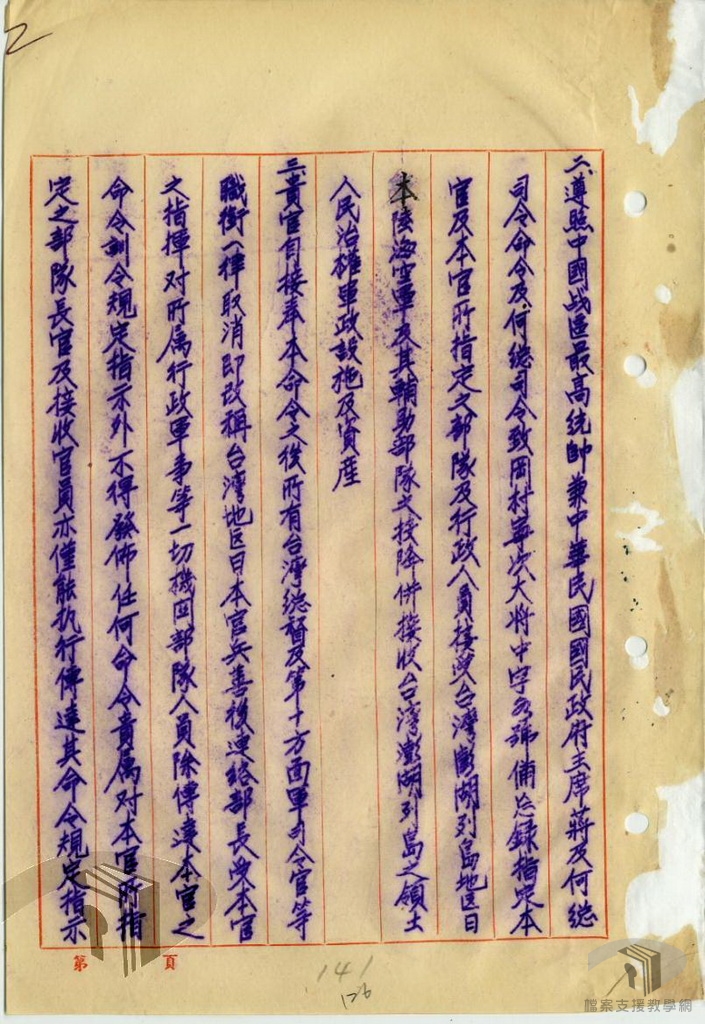 二、遵照中國战區最高統帥兼中華民國國民政府主席蔣及何總
司令命令及何總司令致岡村寧次大将中字各號備忘錄指定本
官及本官所指定之部隊及行政人員接受台灣澎湖列島地區日
本陸海空軍及其輔助部隊之投降併接收台灣澎湖列島之領土
人民治權軍政設施及資産
三、貴官自接奉本命令之後所有台灣總督及第十方面軍司令官等
職銜一律取消即改稱台灣地区日本官兵善後連絡部長受本官
之指揮对所属行政軍事等一切機関部隊人員除傳達本官之
命令訓令規定指示外不得發佈任何命令貴属对本官所指
定之部隊長官及接收官員亦僅能执行傳達其命令規定指示
第 頁
141
126
檔案支援教學網